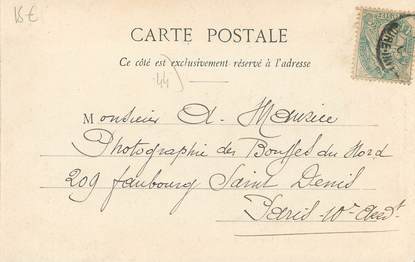 15 €
CARTE POSTALE
Ce côté est exclusivement réservé à l'adresse
44)
Monsieur A. Maurice
Photographie des Bouffes du Nord
209 faubourg Saint Denis
Paris 10e Arrdt